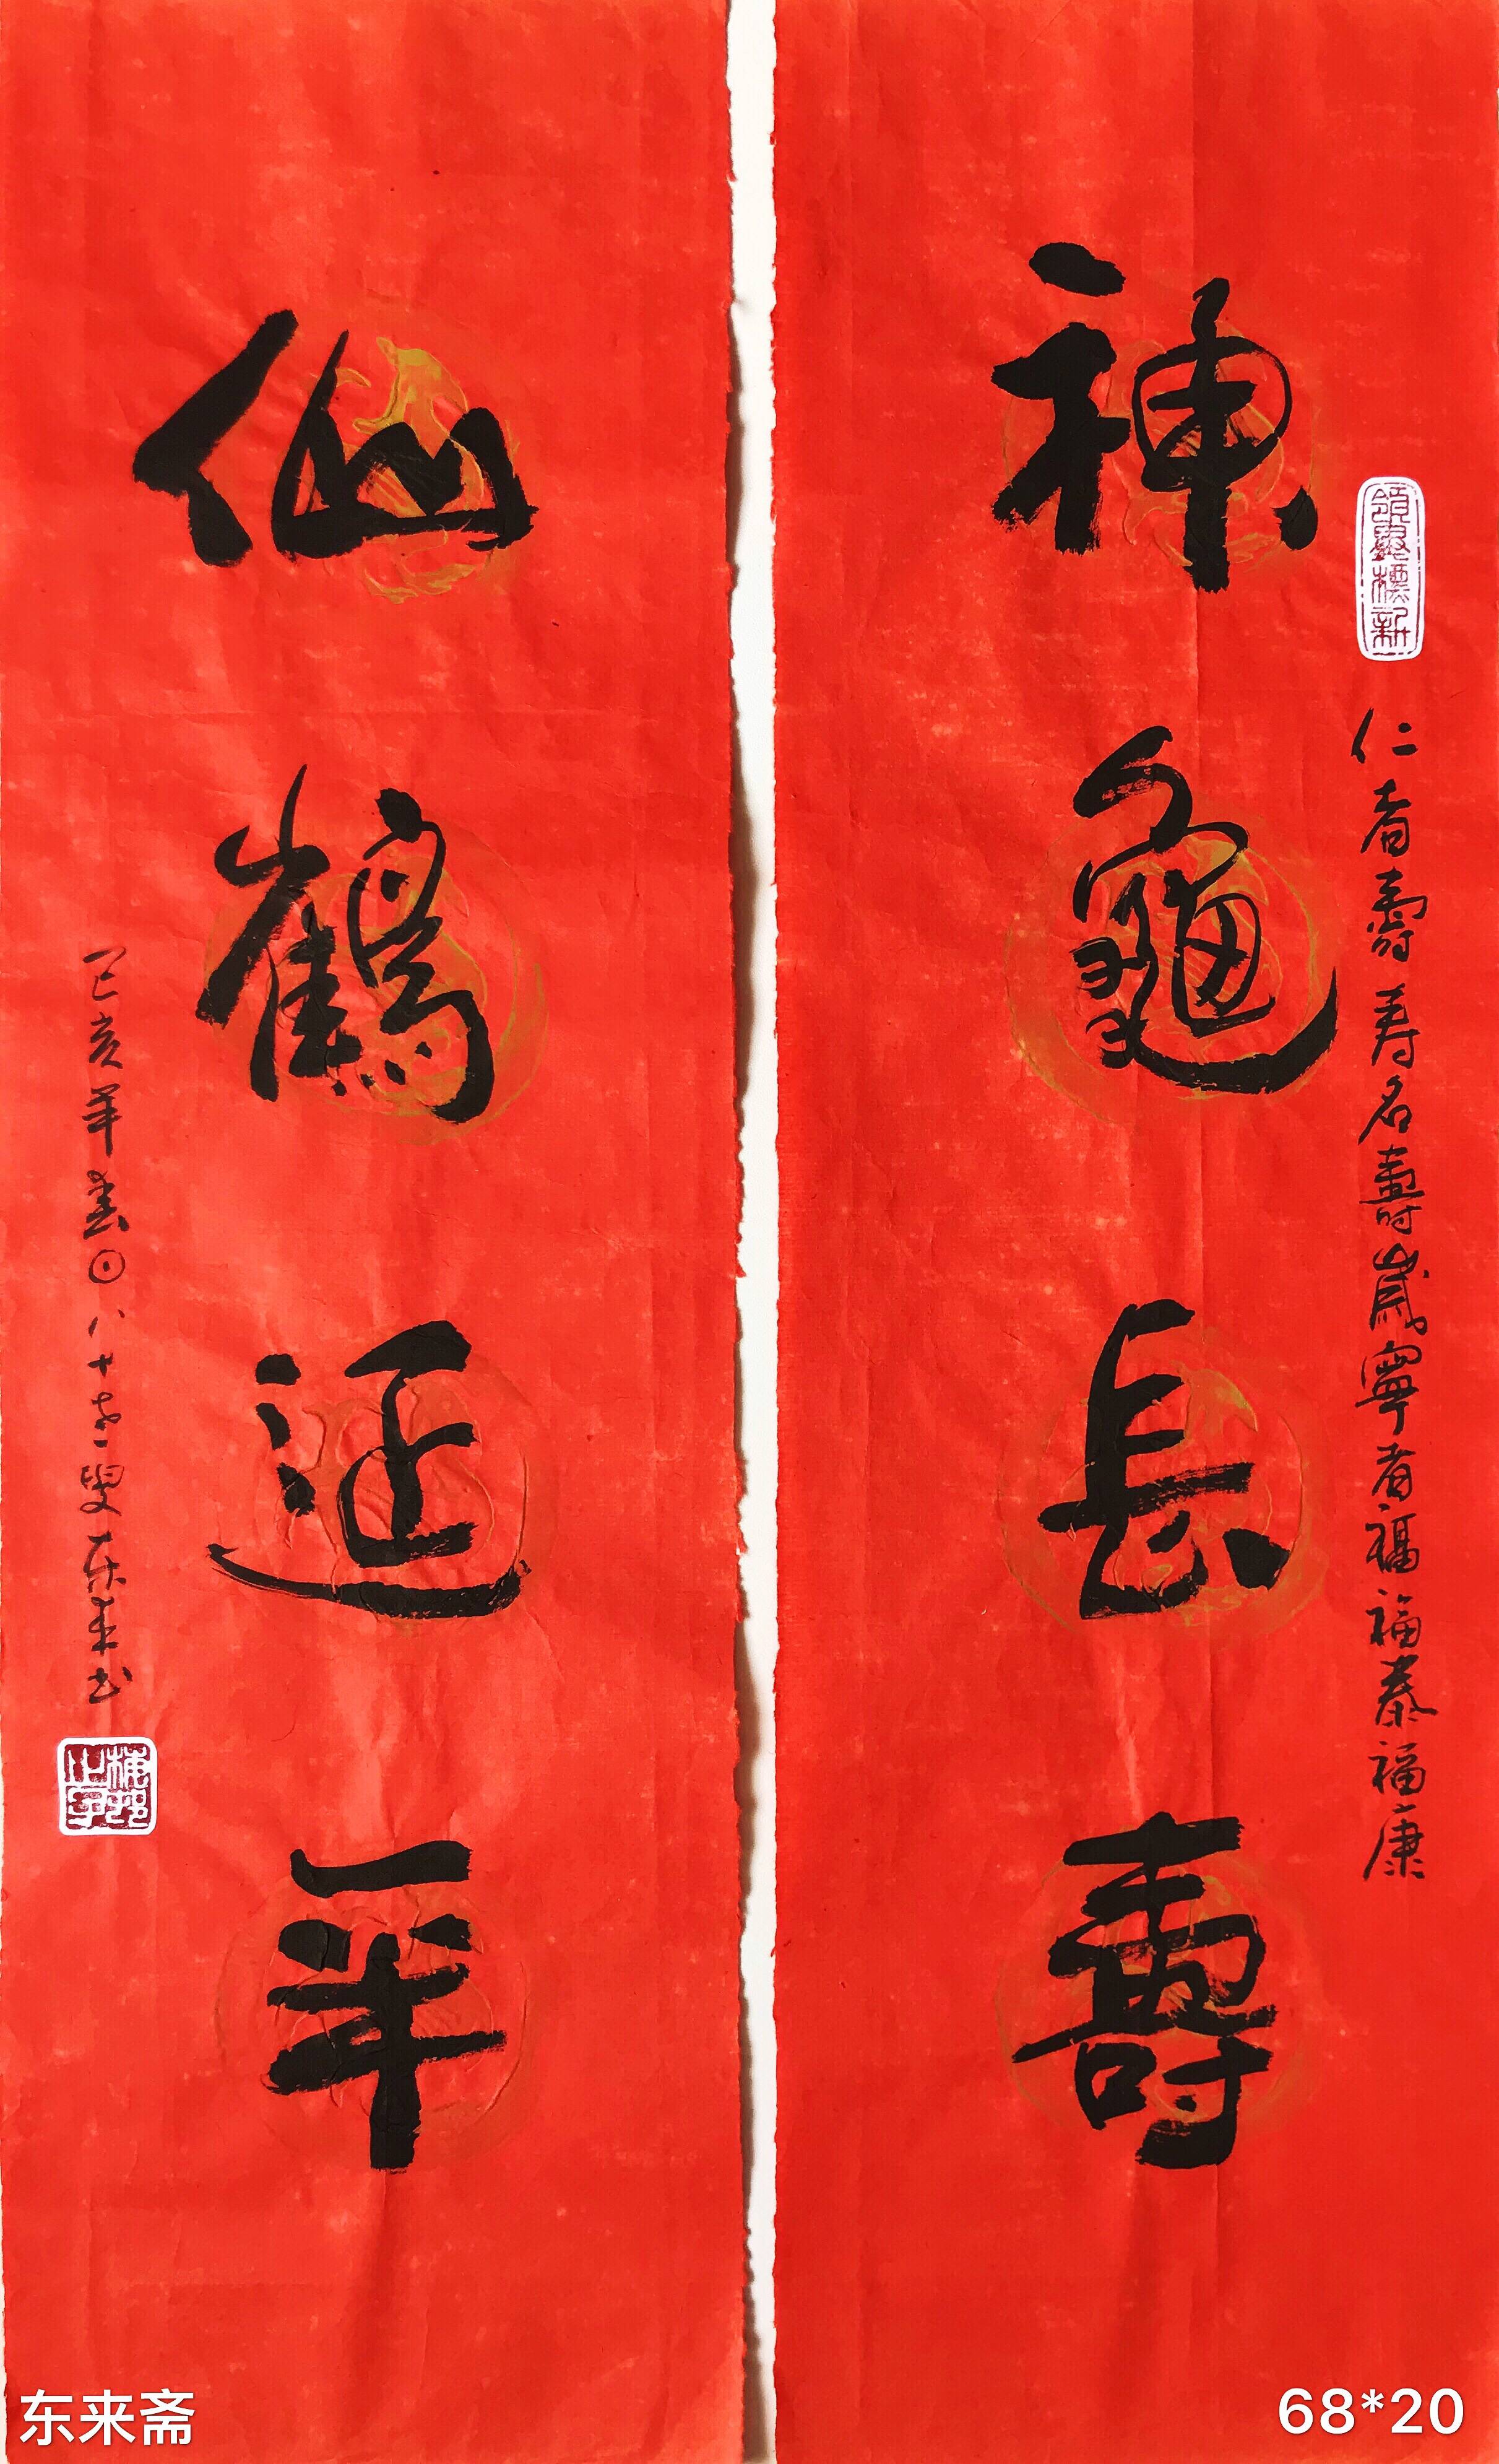 神龜長壽
仁者壽壽名壽歲寧者福福泰福康
仙鶴延年
己亥年春日八十老叟东来书
东来斋
68*20